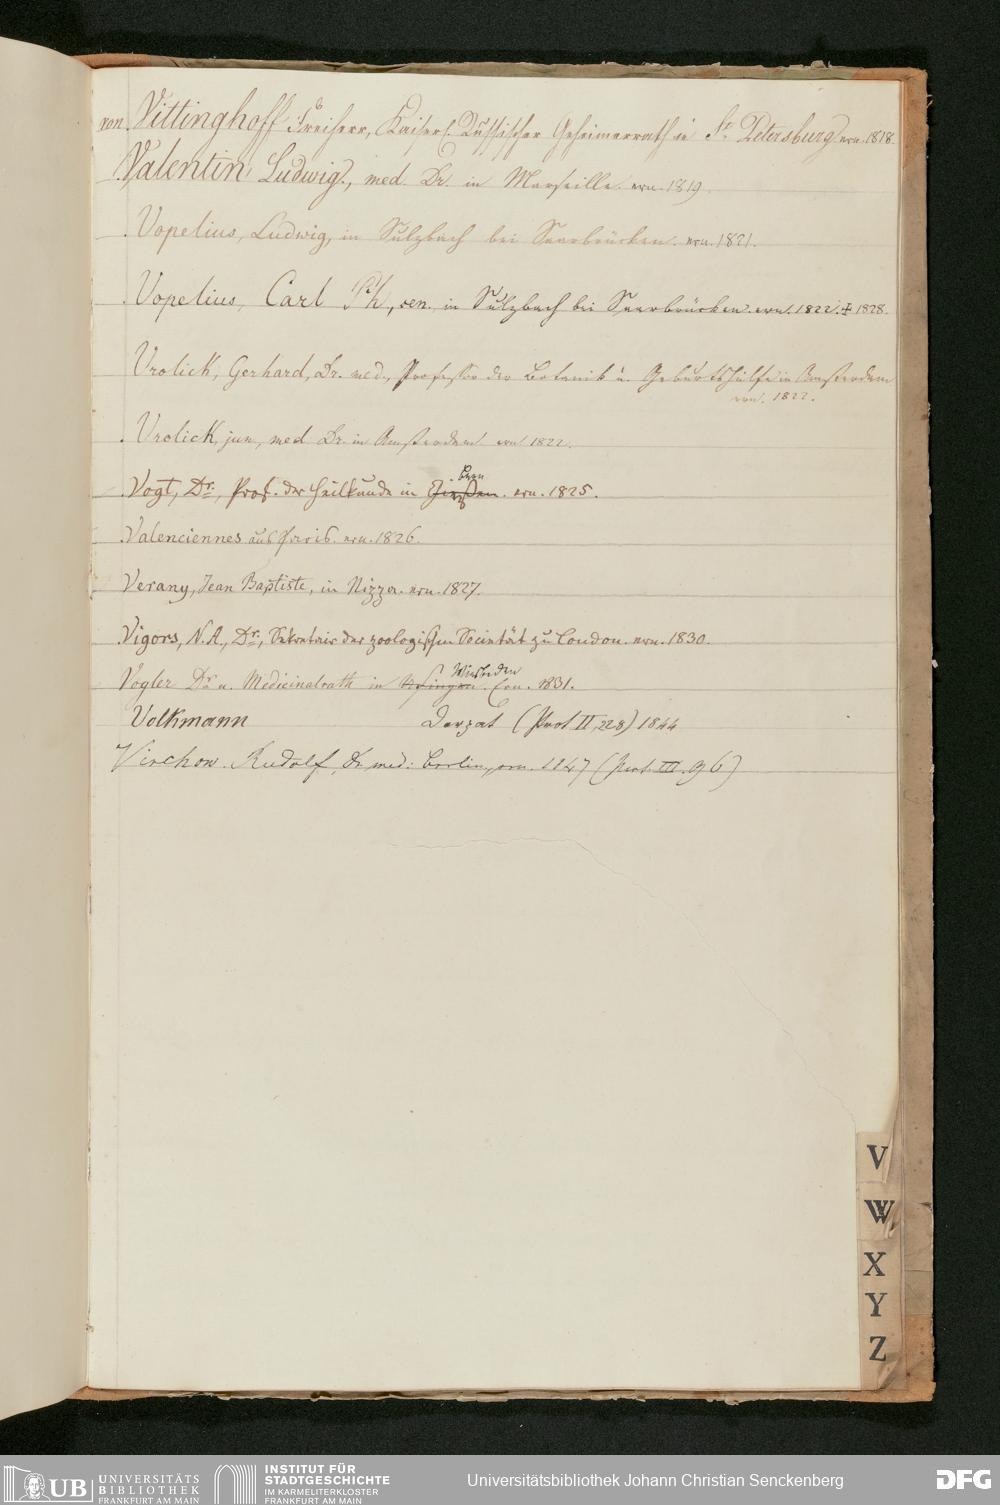 von Vittinghoff Freiherr, Kaiserl. Russischer Geheimerrath in St. Petersburg ern. 1818.
Valentin Ludwig, med. Dr. in Marseille. ern. 1819.
Vopelius, Ludwig, in Sulzbach bei Saarbrücken. ern. 1821.
Vopelius, Carl Ph, sen. in Sulzbach bei Saarbrücken. ern. 1822. ‡ 1828.
Vrolick, Gerhard, Dr. med., Professor der Botanik u. Geburtshülfe in Amsterdam
ern. 1822.
Vrolick, jun, med Dr. in Amsterdam ern 1822.
Bern
Vogt, Dr., Prof. der Heilkunde in Gießen. ern. 1825.
Valenciennes aus Paris. ern. 1826.
Verany, Jean Baptiste, in Nizza. ern. 1827.
Vigors, N. A., Dr., Sekretair der zoologischen Societät zu London. ern. 1830.
Wiesbaden
Vogler Dr. u. Medicinalrath in Usingen. Ern. 1831.
Volkmann Dorpat (Prot II, 228) 1844
Virchow. Rudolf, Dr. med: Berlin, ern. 1847 (Prot. III. 96)
V
W
X
Y
Z
UB UNIVERSITÄTS
BIBLIOTHEK
FRANKFURT AM MAIN
INSTITUT FÜR
STADTGESCHICHTE
IM KARMELITERKLOSTER
FRANKFURT AM MAIN
Universitätsbibliothek Johann Christian Senckenberg
DFG